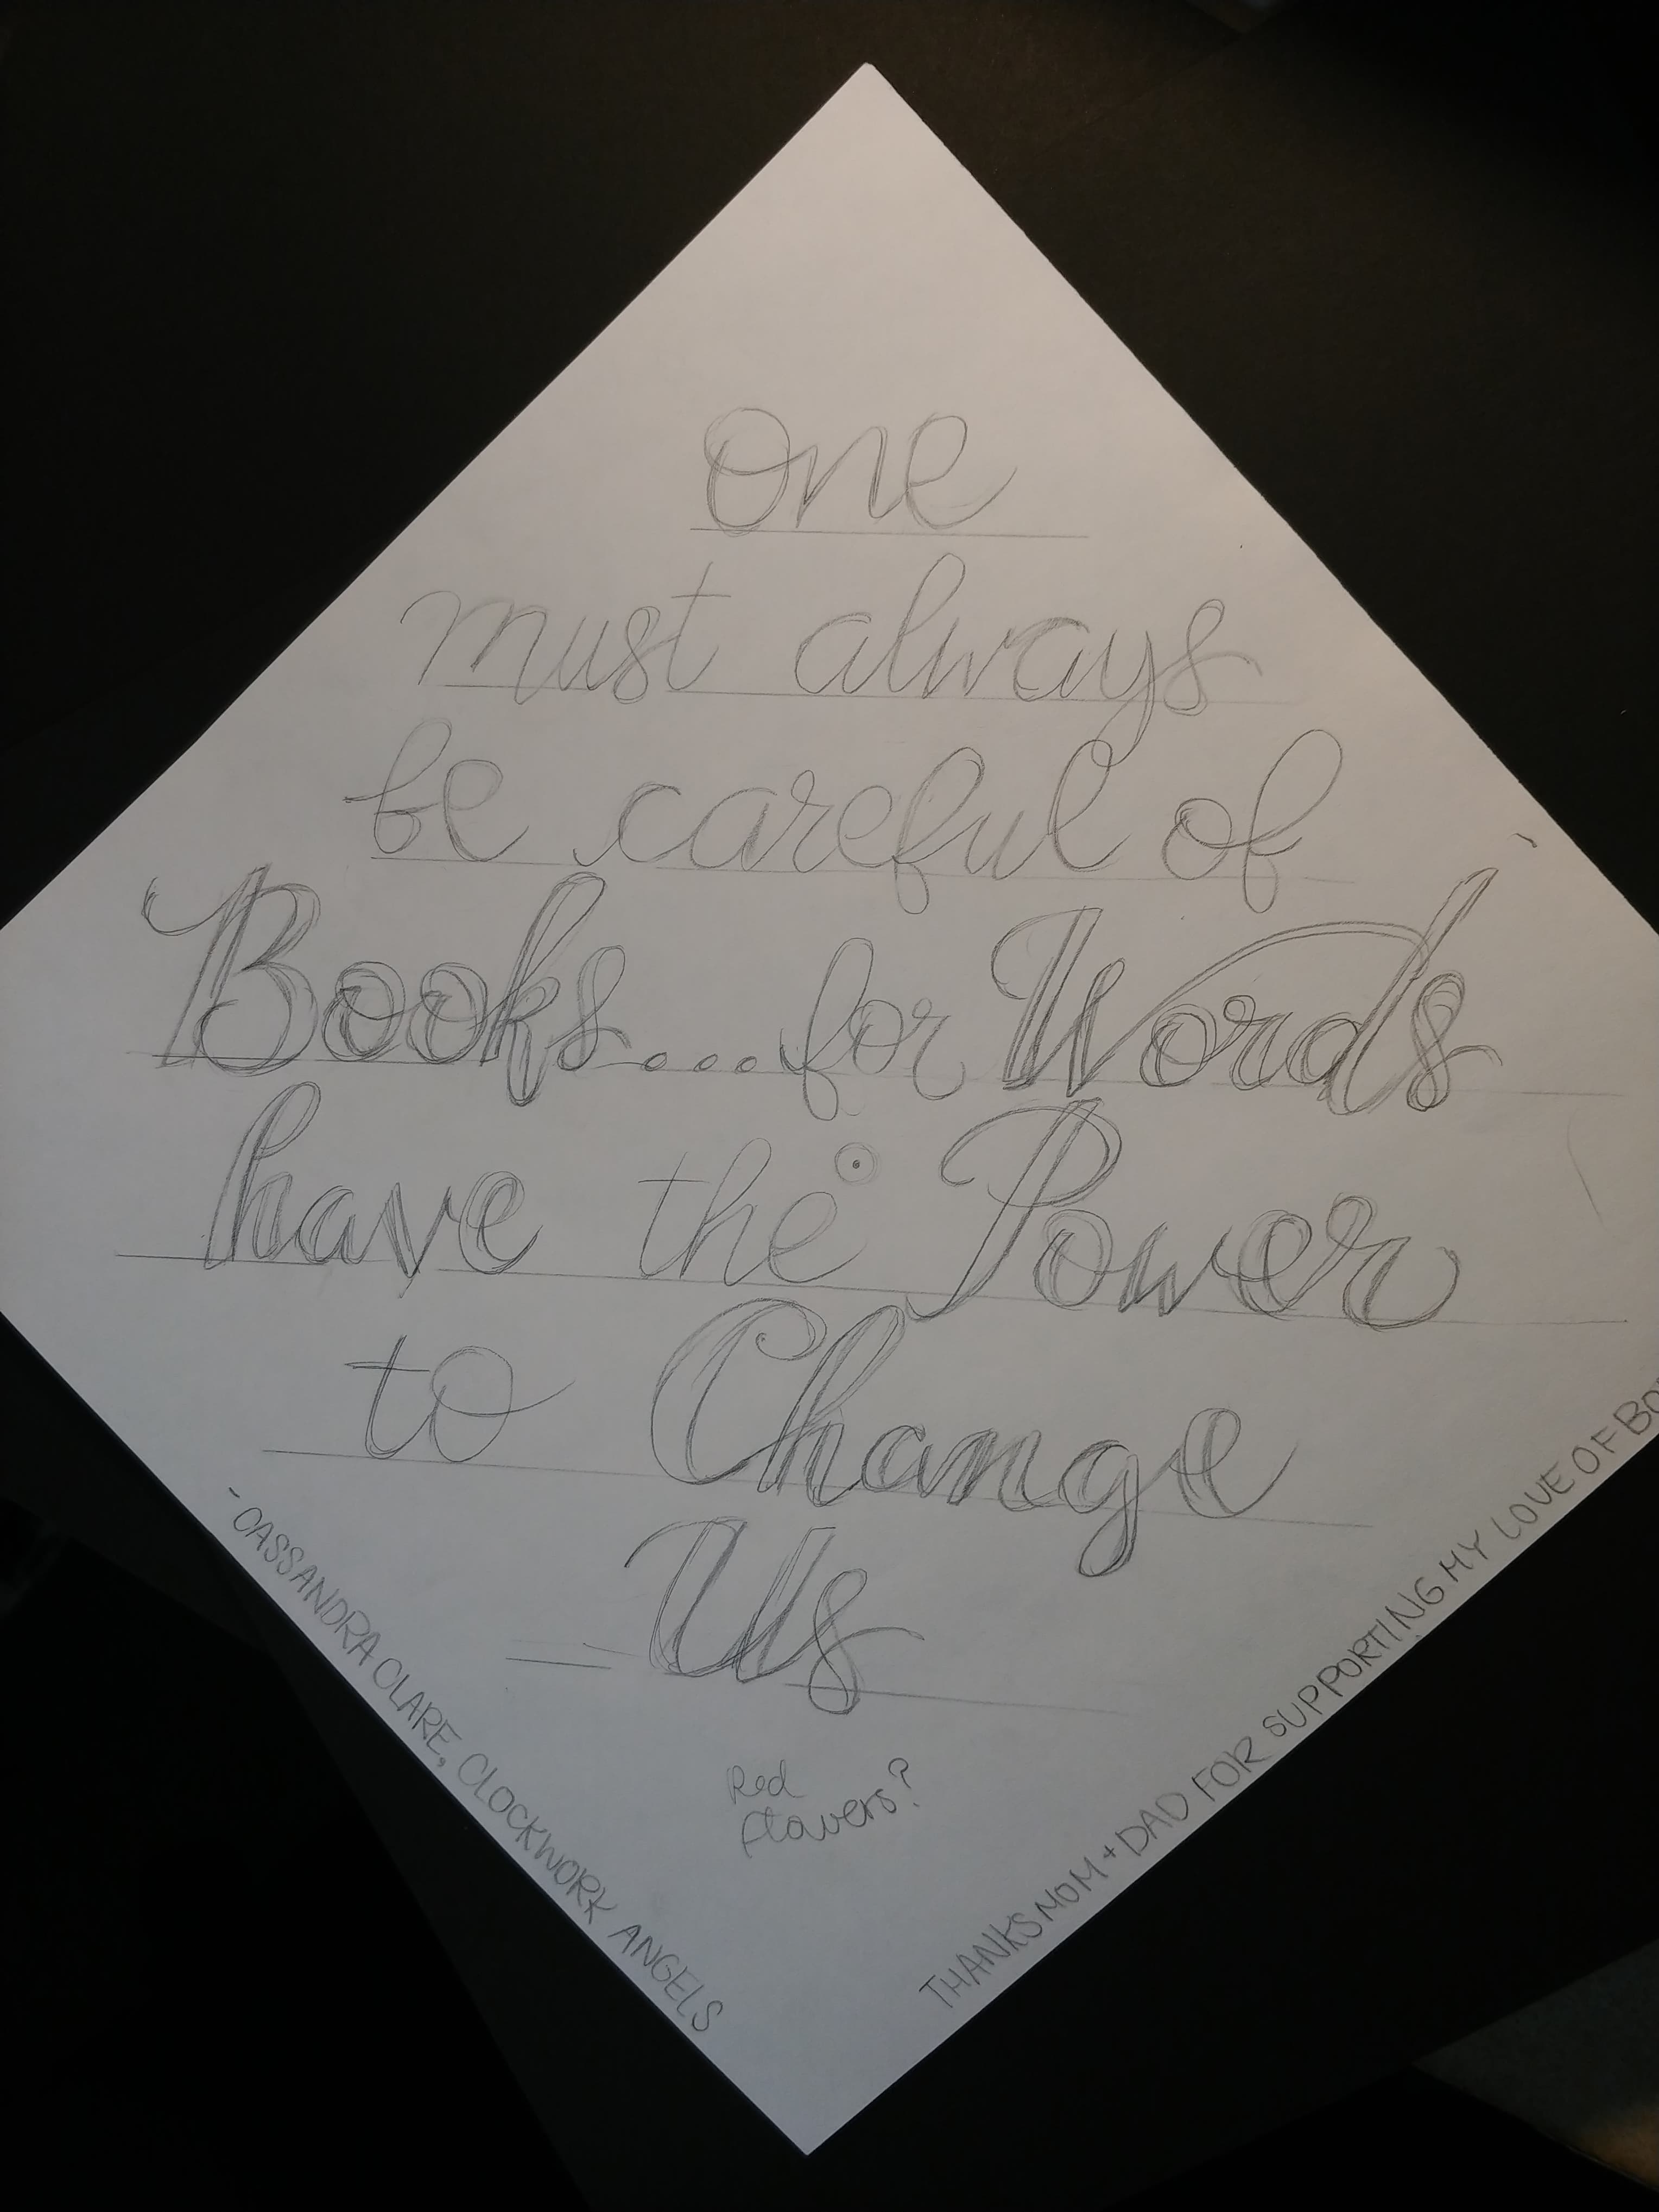 One
must always
be careful of
Books... for Words
have the Power
to Change
Us
Red
flowers?
- CASSANDRA CLARE, CLOCKWORK ANGELS
THANKS MOM + DAD FOR SUPPORTING MY LOVE OF